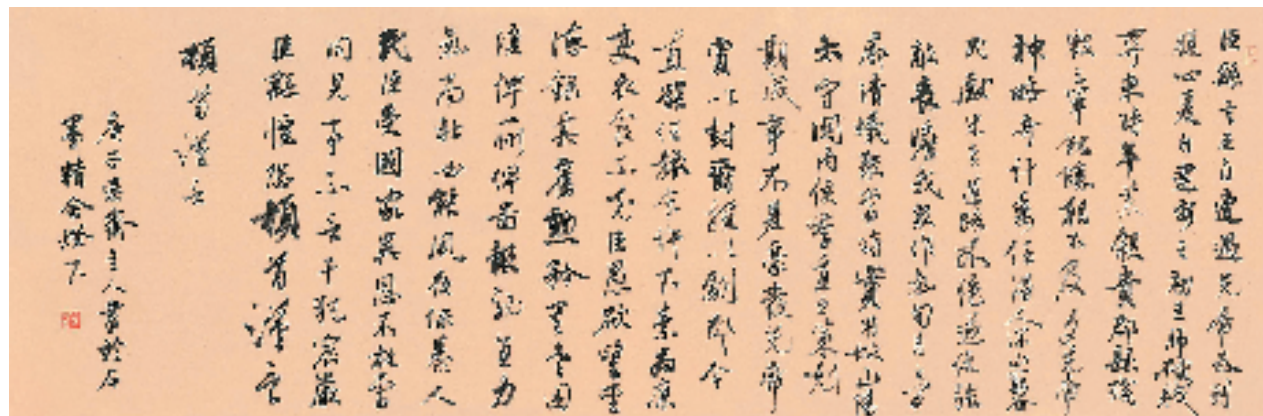 臣繇言臣自遭遇先帝忝列
腹心爰自建安之初王師破賊
關東時年荒穀貴郡縣殘
毀三軍餽饟朝不及夕先帝
神略奇計委任得人深山窮谷
民獻米豆道路不絕遂使強
敵喪膽我眾作氣旬月之間
廓清蟻聚當時實用故山陽
太守關內侯季直之策剋
期成事不差豪髮先帝
賞以封爵授以劇郡今
直罷任旅食許下素為廉
吏衣食不充臣愚欲望聖
德錄其舊勳矜其老困
復俾一州俾圖報效直力
氣尚壯必能夙夜保養人
民臣受國家異恩不敢雷
同見事不言干犯宸嚴
臣繇惶恐頓首謹言
頓首謹言
庚子主人書於石
墨精舍燈下